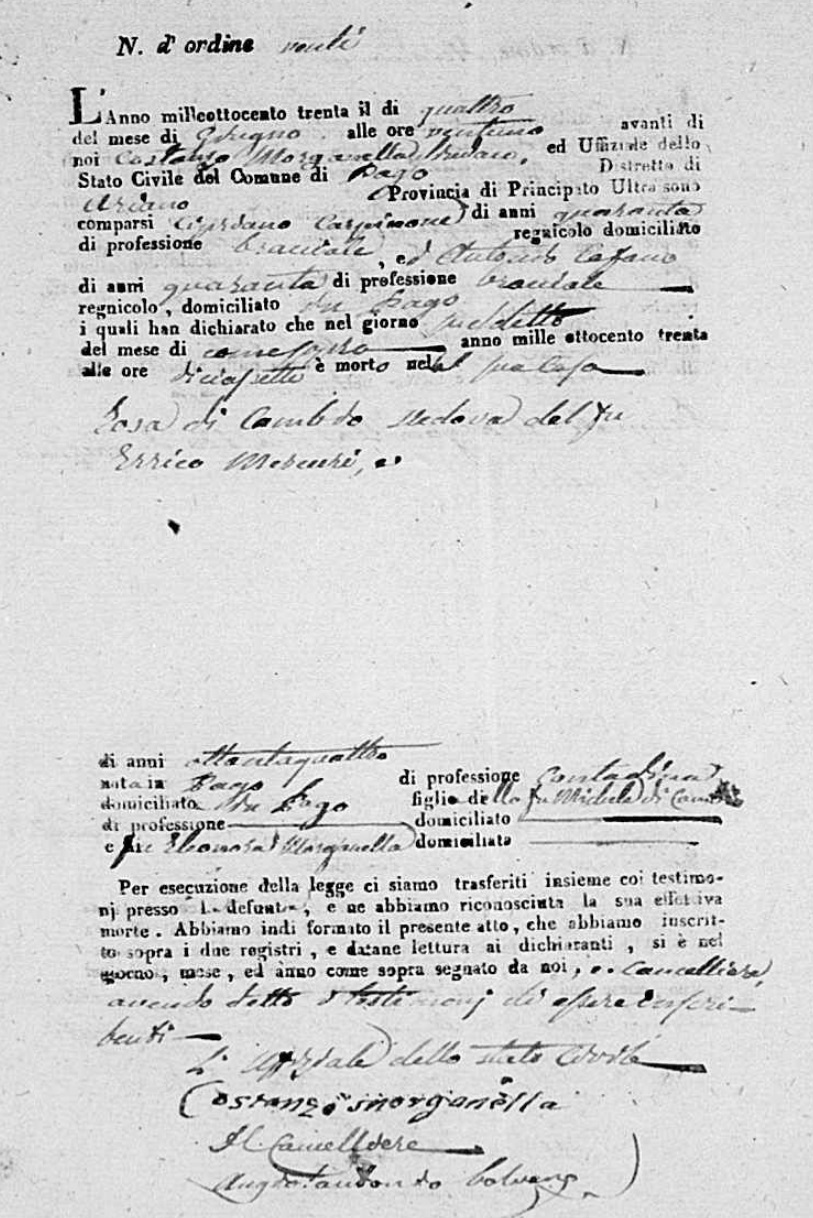 N. d' ordine venti
L'Anno milleottocento trenta il di quattro
del mese di Giugno alle ore ventuno avanti di
noi Costanzo Morganella Sindaco, ed Uffiziale dello
Stato Civile del Comune di Pago Distretto di
Ariano Provincia di Principato Ultra sono
comparsi Cipriano Carpinone di anni quaranta
di professione bracciale regnicolo domiciliato
, ed Antonio Cafano
di anni quaranta di professione bracciale
regnicolo, domiciliato in Pago
i quali han dichiarato che nel giorno suddetto
del mese di come sopra anno mille ottocento trenta
alle ore diciasette è morto nella sua casa
Rosa di vedova del fu
Errico Mercuri, e
di anni ottantaquattro
nata in Pago di professione contadina
domiciliata in Pago figlia dello fu Michele di
di professione domiciliato
e fu Eleonora Morganella domiciliata
Per esecuzione della legge ci siamo trasferiti insieme coi testimo-
nj presso l defunt , e ne abbiamo riconosciuta la sua effettiva
morte. Abbiamo indi formato il presente atto, che abbiamo inscrit-
to sopra i due registri, e datane lettura ai dichiaranti, si è nel
giorno, mese, ed anno come sopra segnato da noi, e cancelliere,
avendo detto i testimonj di essere inscri-
benti
L' Uffiziale dello stato Civile
Costanzo Morganella
Il Cancelliere